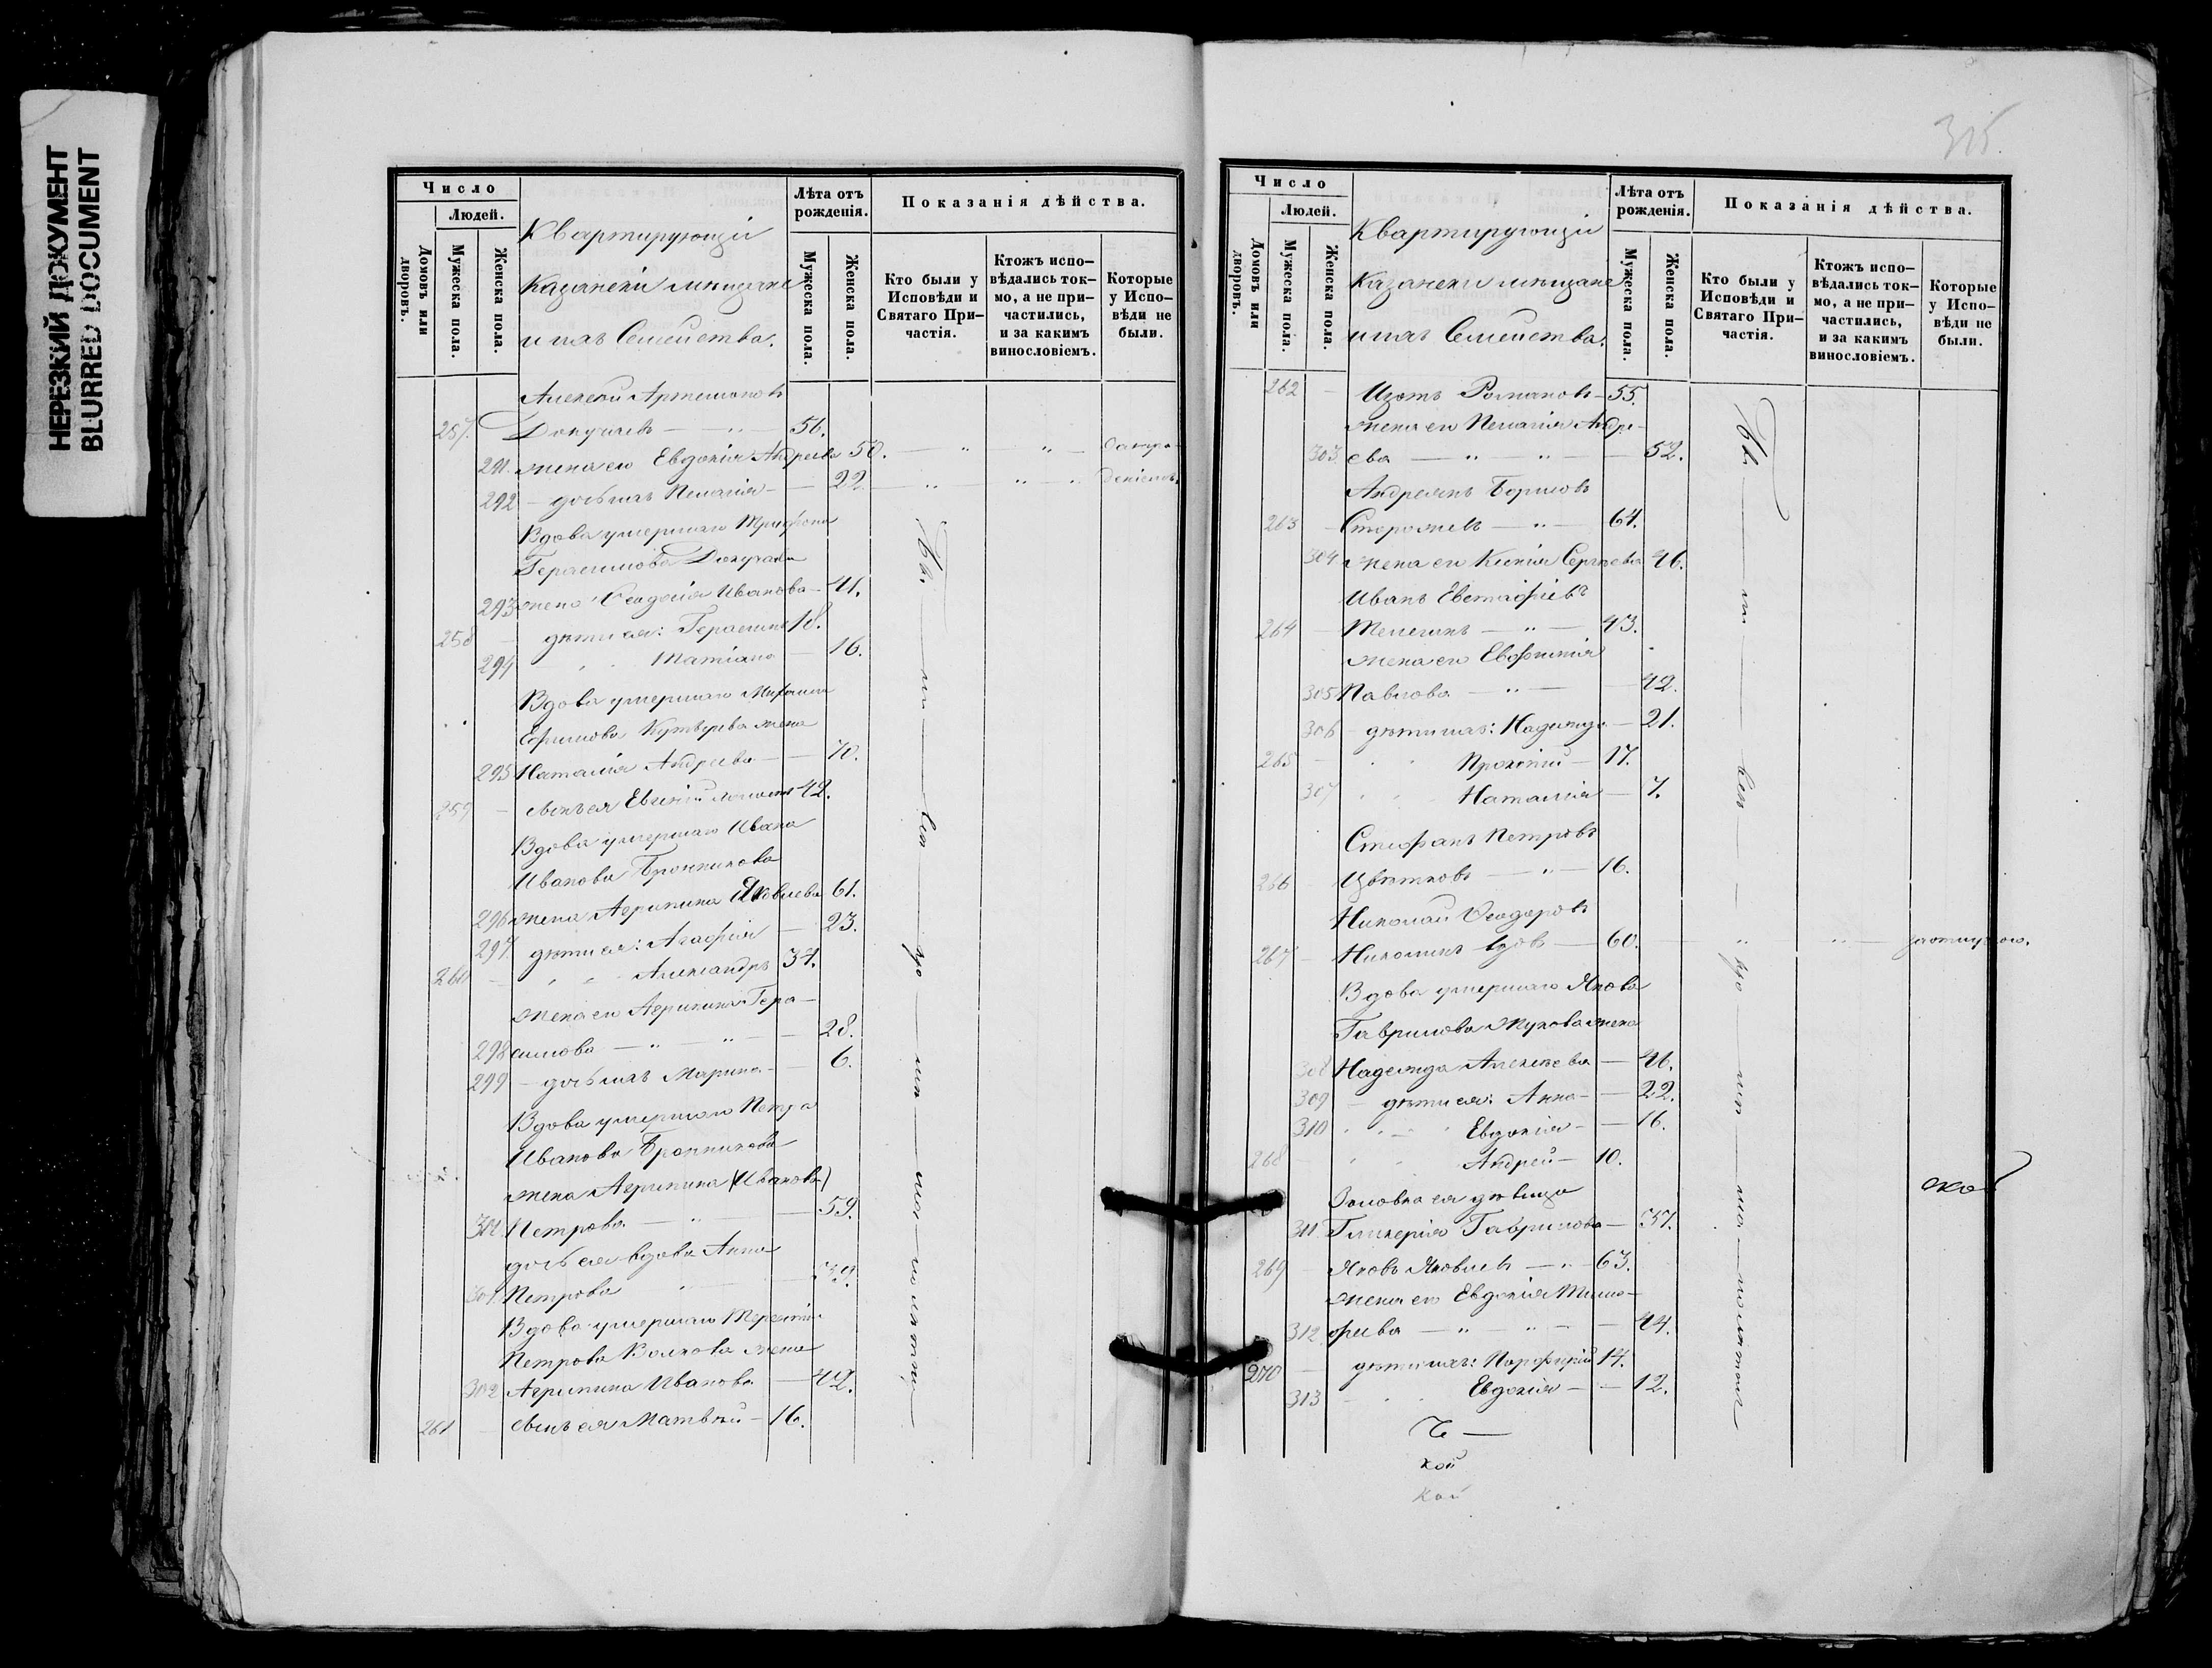 НЕРЕЗКИЙ ДОКУМЕНТ
BLURRED DOCUMENT
Число
Людей.
Домовъ или дворовъ.
Мужеска пола.
Женска пола.
Квартирующіи
Казанскіи мѣщане
и ихъ Семейства.
Лѣта отъ рожденія.
Мужеска пола.
Женска пола.
Показанія дѣйства.
Кто были у Исповѣди и Святаго При-частія.
Ктожъ испо-вѣдались ток-мо, а не при-частились, и за какимъ винословіемъ.
Которые у Испо-вѣди не были.
Алексѣй Артемоновъ
257. Докучаевъ — " — 56.
291. жена его Евдокія Андреева 50. — " — " —
292 — дочь ихъ Пелагія — 22 — " — " "
Вдова умершаго Трифона
Герасимова Докучаева
293 жена Ѳеодосія Иванова — 41.
258 — дѣти ея: Герасимъ 18.
294 " " Татіана — 16.
Вдова умершаго Михаила
Ефимова жена
295 Наталія Андреева — 70.
259 — сынъ ея 42.
Вдова умершаго Ивана
Иванова Бронникова
296 жена Агрипина Яковлева 61.
297 дѣти ея: Агафія — 23.
260 — " " Александръ 34.
жена его Агрипина Гера-
298 симова — " — " — 28.
299 — дочь ихъ Марина — 6.
Вдова умершаго Петра
Иванова Бронникова
жена Агрипина (Иванова)
300 Петрова — " — 59.
дочь ея вдова Анна
301 Петрова " — 39.
Вдова умершаго Терентія
Петрова Волкова жена
302 Агрипина Иванова — 42.
261 — сынъ ея Матвѣй — 16.
315.
Число
Людей.
Домовъ или дворовъ.
Мужеска пола.
Женска пола.
Квартирующіи
Казанскіи мѣщане
и ихъ Семейства.
Лѣта отъ рожденія.
Мужеска пола.
Женска пола.
Показанія дѣйства.
Кто были у Исповѣди и Святаго При-частія.
Ктожъ испо-вѣдались ток-мо, а не при-частились, и за какимъ винословіемъ.
Которые у Испо-вѣди не были.
262 — Изотъ Романовъ — 55.
жена его Пелагія Андре-
303. ева — " — " — 52.
Андреянъ Борисовъ
263 — — " — 64.
304. жена его Ксенія Сергѣева 46.
Иванъ Евстафіевъ
264 — — " — 43.
жена его Евфимія
305 Павлова — " — 42.
306 — дѣти ихъ: Надежда — 21.
265 — " " Прокопій — 17.
307 " " Наталія — 7.
Стефанъ Петровъ
266 Цвѣтковъ — " — 16.
Николай Ѳеодоровъ
267 — вдовъ — 60. — " " —
Вдова умершаго Якова
Гаврилова Жукова жена
308 Надежда Алексѣева — 46.
309 — дѣти ея: Анна — 22.
310 " " Евдокія — 16.
268 " " Андрей — 10.
Золовка ея дѣвица
311. Гликерія Гаврилова — 57.
269 — Яковъ Яковлевъ — " — 63.
жена его Евдокія Тимо-
312 феева — " — " — 44.
270 — дѣти ихъ: Порфирій 14.
313 — " " Евдокія — 12.
кой
кой